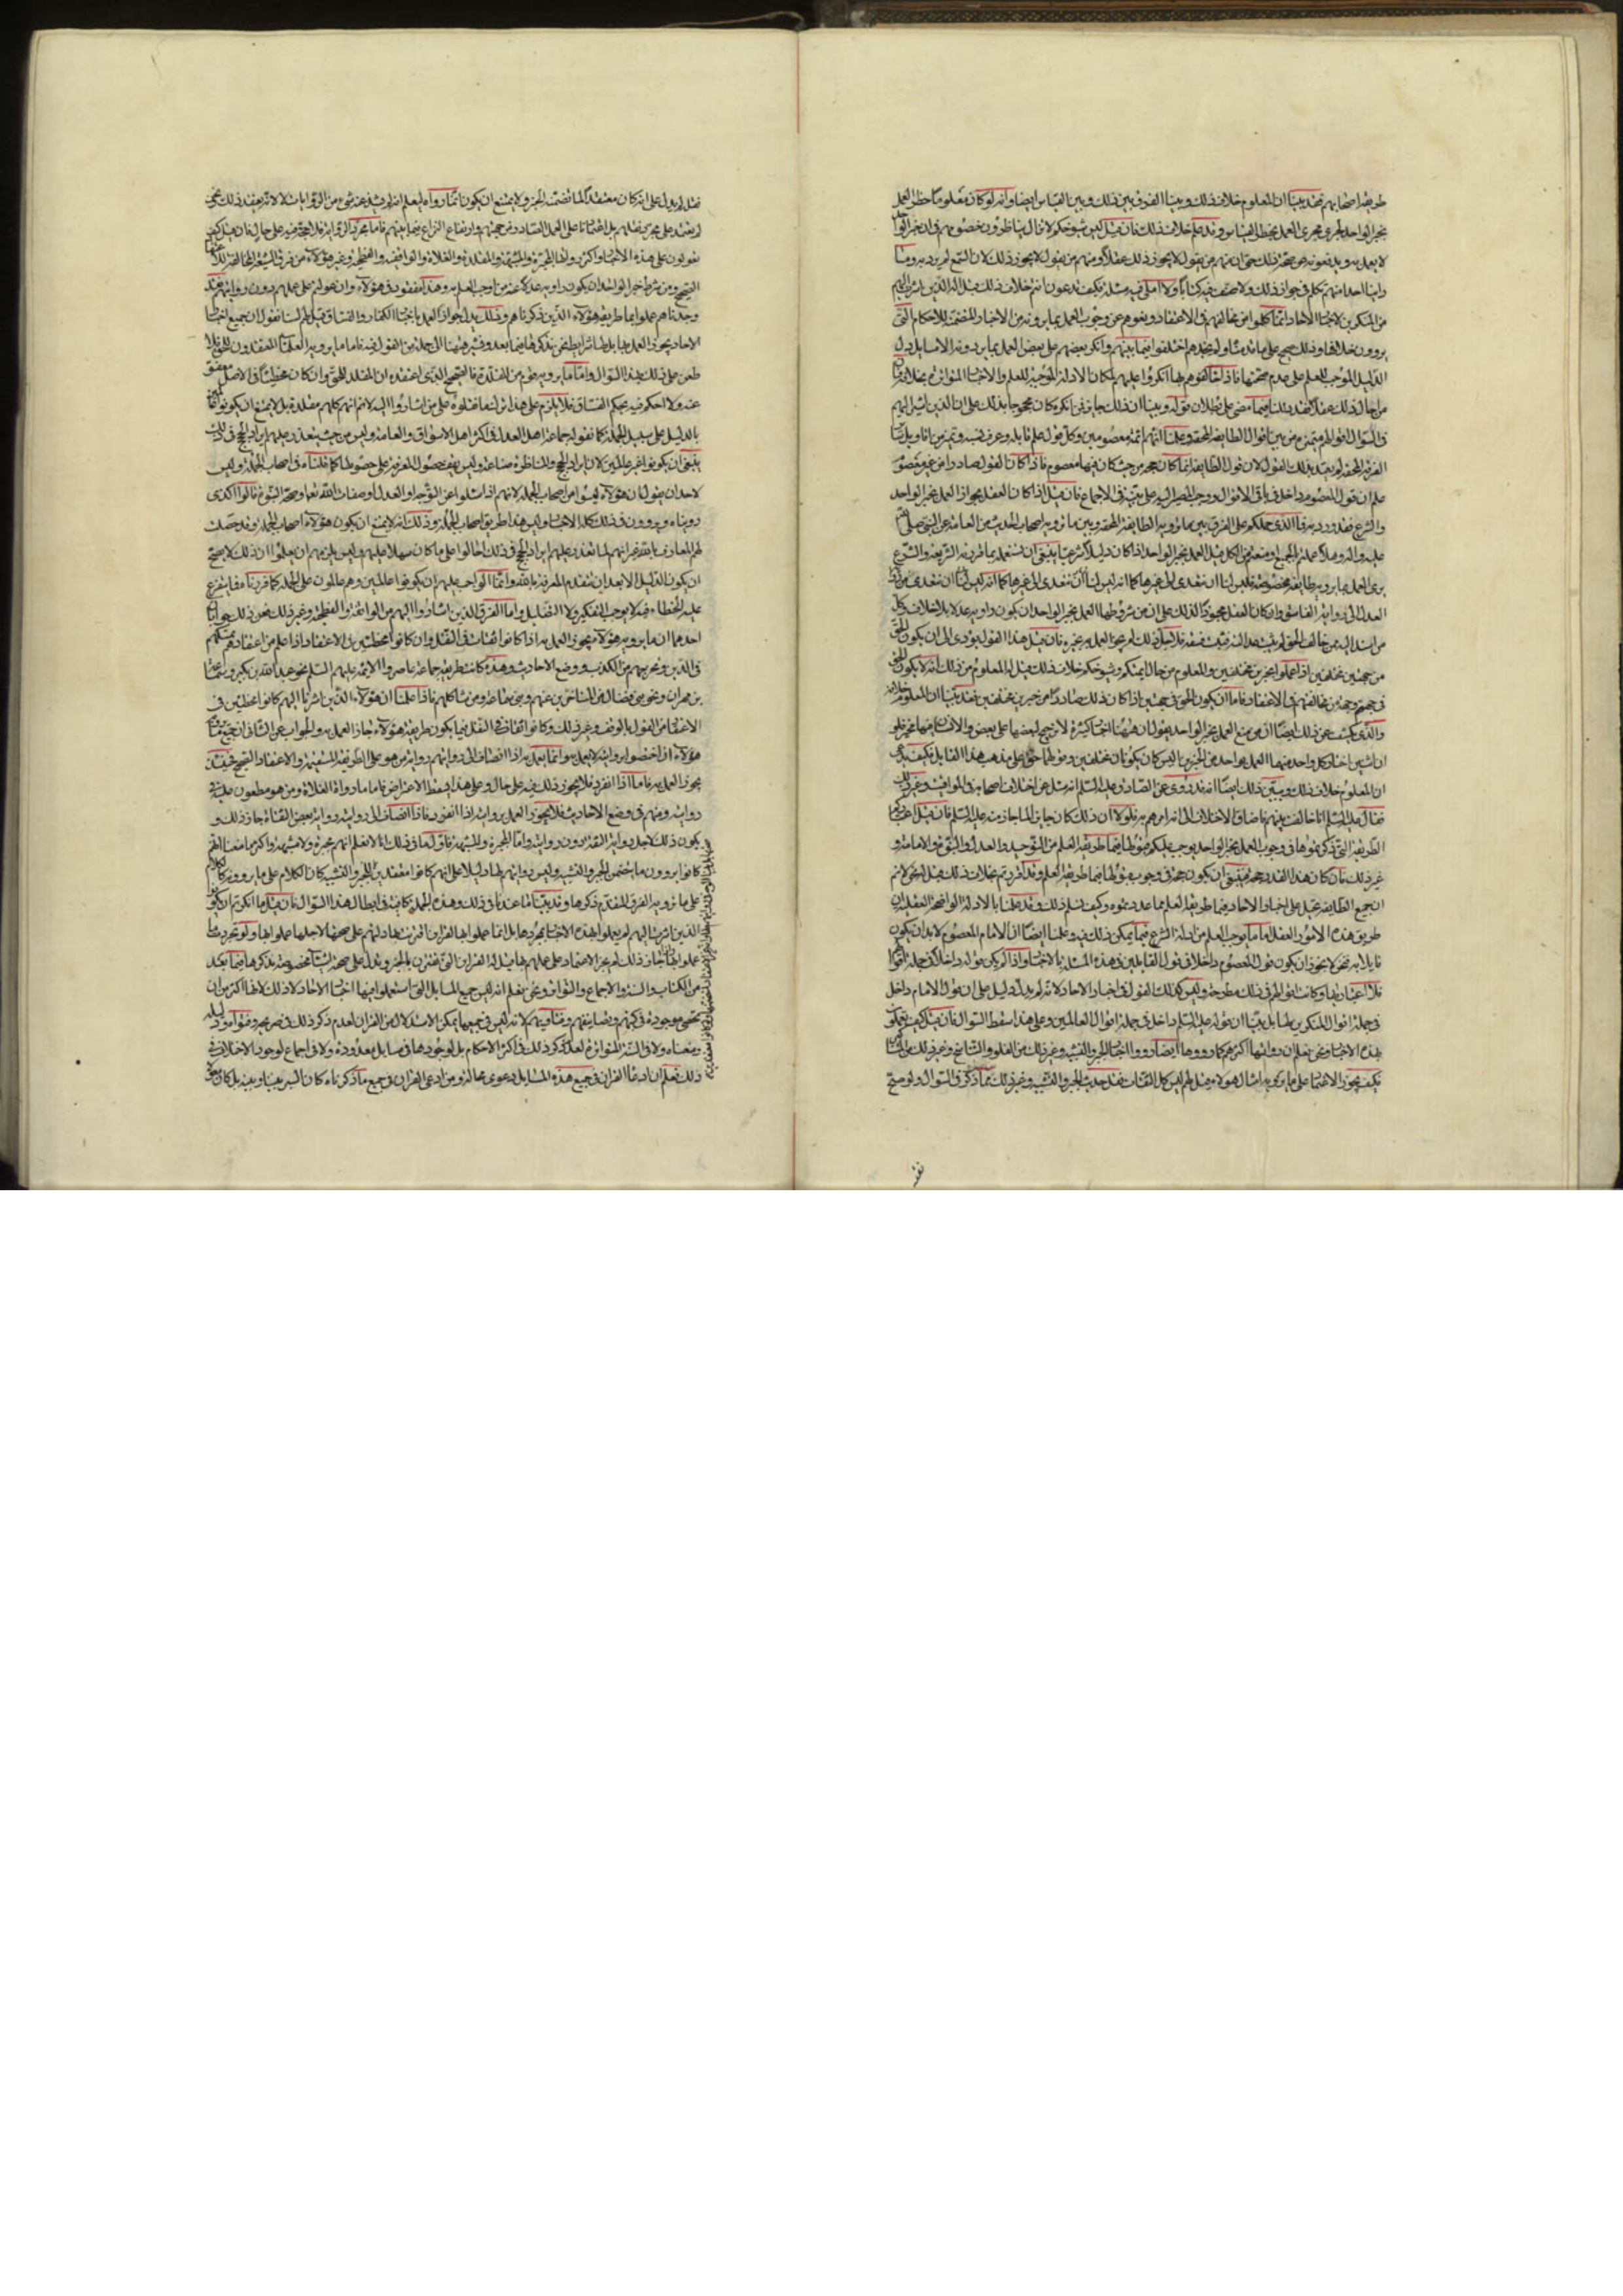 طريقة اصحابهم فقد بينا ان المعلوم خلاف ذلك وبينا الفرق بين ذلك وبين القياس ايضا وانه لو كان معلوما حظر العمل
بخبر الواحد لجرى مجرى العمل بحظر القياس وقد علم خلاف ذلك فان قيل اليس شيوخكم لا تزال يناظرون خصومهم في ان خبر الواحد
لا يعمل به ويدفعونهم عن صحة ذلك حتى ان منهم من يقول لا يجوز ذلك عقلا ومنهم من يقول لا يجوز ذلك لان السمع لم يرد به وما
راينا احدا منهم تكلم في جواز ذلك ولا صنف فيه كتابا ولا املى فيه مسئلة فكيف تدعون انتم خلاف ذلك قيل له الذين اشرت اليهم
من المنكرين لاخبار الاحاد انما كلموا من خالفهم في الاعتقاد ودفعوهم عن وجوب العمل بما يروونه من الاخبار المتضمنة للاحكام التي
يروون خلافها وذلك صحيح على ما قدمنا ولم نجدهم اختلفوا فيما بينهم وانكر بعضهم على بعض العمل بما يروونه الا مسايل دل
الدليل الموجب للعلم على عدم صحتها فاذا خالفوهم فيها انكروا عليهم لمكان الادلة الموجبة للعلم والاخبار المتواترة بخلافه
من احال ذلك عقلا فقد دللنا فيما مضى على بطلان قوله وبينا ان ذلك جايز فمن انكره كان محجوجا بذلك على ان الذين اشير اليهم
في السؤال اقوالهم متميزة من بين اقوال الطايفة المحقة وعلمنا انهم لم يكونوا ائمة معصومين وكل قول علم قايله وعرف نسبه وتميز من اقاويل ساير
الفرقة المحقة لم يعتد بذلك القول لان قول الطايفة انما كان حجة من حيث كان فيها معصوم فاذا كان القول صادرا من غير معصوم
علم ان قول المعصوم داخل في باقي الاقوال ووجب المصير اليه على ما نبينه في الاجماع فان قيل اذا كان العقل يجوز العمل بخبر الواحد
والشرع قد ورد به فما الذي حملكم على الفرق بين ما يرويه الطايفة المحقة وبين ما يرويه اصحاب الحديث من العامة عن النبي صلى الله
عليه واله وهلا عملتم بالجميع او منعتم من الكل قيل العمل بخبر الواحد اذا كان دليلا شرعيا ينبغي ان نستعمله بما قررته الشريعة والشرع
يرى العمل بما يرويه طايفة مخصوصة فليس لنا ان نتعدى الى غيرها كما انه ليس لنا ان نتعدى من رواية
العدل الى رواية الفاسق وان كان العقل مجوزا لذلك على ان من شرط العمل بخبر الواحد ان يكون راويه عدلا بلا خلاف وكل
من اسند اليه ممن خالف الحق لم يثبت عدالته بل ثبت فسقه فلاجل ذلك لم يجز العمل بخبره فان قيل هذا القول يؤدي الى ان يكون الحق
من جهتين مختلفتين اذا عملوا بخبرين مختلفين والمعلوم من حال ائمتكم وشيوخكم خلاف ذلك قيل له المعلوم من ذلك انه لا يكون الحق
في جهتهم وجهة من خالفهم في الاعتقاد فاما ان يكون الحق في جهتين اذا كان ذلك صادرا من خبرين مختلفين فقد بينا ان المعلوم خلافه
والذي يكشف عن ذلك ايضا ان من منع العمل بخبر الواحد يقول ان ههنا اخبارا كثيرة لا ترجيح لبعضها على بعض والانسان فيها مخير فلو
ان اثنين اختار كل واحد منهما العمل بواحد من الخبرين اليس كان يكونان مختلفين وقولهما حق على مذهب هذا القايل فكيف يدعى
ان المعلوم خلاف ذلك ويبين ذلك ايضا انه قد روي عن الصادق عليه السلم انه سئل عن اختلاف اصحابه في المواقيت وغير ذلك
فقال عليه السلم انا خالفت بينهم فاضاف الاختلاف الى انه امرهم به فلولا ان ذلك كان جايزا لما جاز منه عليه السلم فان قيل اعتباركم
الطريقة التي ذكرتموها في وجوب العمل بخبر الواحد يوجب عليكم قبولها فيما طريقه العلم من التوحيد والعدل والنبوة والامامة و
غير ذلك فان كان هذا القدر حجة فينبغي ان يكون حجة في وجوب قبولها فيما طريقه العلم وقد اقررتم بخلاف ذلك قيل له نحن لا نعلم
ان جميع الطايفة تقبل على اخبار الاحاد فيما طريقه العلم مما عددتموه وكيف نسلم ذلك وقد علمنا بالادلة الواضحة العقلية ان
طريق هذه الامور العقل او ما يوجب العلم من ادلة الشرع فيما يمكن ذلك فيه وعلمنا ايضا ان الامام المعصوم لا بد ان يكون
قايلا به فنحن لا نجوز ان يكون قول المعصوم داخلا في قول القايلين في هذه المسئلة بالاخبار واذا لم يكن قوله داخلا في جملة اقوالهم
فلا اعتبار بها وكانت اقوالهم في ذلك مطرحة وليس كذلك القول في اخبار الاحاد لانه لم يدل دليل على ان قول الامام داخل
في جملة اقوال المنكرين لها بل بينا ان قوله عليه السلم داخل في جملة اقوال العاملين وعلى هذا سقط السؤال فان قيل كيف تعملون
بهذه الاخبار ونحن نعلم ان رواتها اكثرهم كما رووها رووا ايضا اخبار الجبر والتشبيه وغير ذلك من الغلو والتناسخ وغير ذلك من المناكير
فكيف يجوز الاعتماد على ما يرويه امثال هؤلاء قيل لهم ليس كل الثقات نقل حديث الجبر والتشبيه وغير ذلك مما ذكر في السؤال ولو صح
نقله
نقله لم يدل على انه كان معتقدا لما تضمنه الخبر ولا يمتنع ان يكون انما رواه ليعلم انه لم يشذ عنه شيء من الروايات لا لانه يعتقد ذلك ونحن
لم نعتمد على مجرد نقلهم بل اعتمادنا على العمل الصادر من جهتهم وارتفاع النزاع فيما بينهم فاما مجرد الرواية فلا حجة فيه على حال فان قيل كيف
تعولون على هذه الاخبار واكثر رواتها المجبرة والمشبهة والمقلدة والغلاة والواقفة والفطحية وغير هؤلاء من فرق الشيعة المخالفة للاعتقاد
الصحيح ومن شرط خبر الواحد ان يكون راويه عدلا عند من اوجب العمل به وهذا مفقود في هؤلاء وان عولتم على عملهم دون روايتهم فقد
وجدناهم عملوا بما طريقه هؤلاء الذين ذكرناهم وذلك يدل على جواز العمل باخبار الكفار والفساق قيل لهم لسنا نقول ان جميع اخبار
الاحاد يجوز العمل بها بل لها شرايط نحن نذكرها فيما بعد ونشير ههنا الى جملة من القول فيه فاما ما يرويه العلماء المعتقدون للحق فلا
طعن على ذلك بهذا السؤال واما ما يرويه قوم من المقلدة فالصحيح الذي اعتقده ان المقلد للحق وان كان مخطئا في الاصل معفو
عنه ولا احكم فيه بحكم الفساق فلا يلزم على هذا ترك ما نقلوه على ان من اشاروا اليه لا نسلم انهم كلهم مقلدة بل لا يمتنع ان يكونوا عالمين
بالدليل على سبيل الجملة كما نقوله جماعة اهل العدل في كثير من اهل الاسواق والعامة وليس من حيث يتعذر عليهم ايراد الحجج في ذلك
ينبغي ان يكونوا غير عالمين لان ايراد الحجج والمناظرة صناعة وليس يقف حصول المعرفة على حصولها كما قلناه في اصحاب الجملة وليس
لاحد ان يقول ان هؤلاء ليسوا من اصحاب الجملة لانهم اذا سئلوا عن التوحيد او العدل او صفات الله تعالى وصحة النبوة قالوا كذى
روينا ويروون في ذلك كله الاخبار وليس هذا طريق اصحاب الجملة وذلك انه لا يمتنع ان يكون هؤلاء اصحاب الجملة وقد حصلت
لهم المعارف بالله غير انهم لما تعذر عليهم ايراد الحجج في ذلك احالوا على ما كان سهلا عليهم وليس يلزمهم ان يعلموا ان ذلك لا يصح
ان يكون دليلا الا بعد ان يتقدم المعرفة بالله وانما الواجب عليهم ان يكونوا عالمين وهم عالمون على الجملة كما قررنا فما يتفرع
عليه الخطاء فيه لا يوجب التكفير ولا التضليل واما الفرق الذين اشاروا اليهم من الواقفة والفطحية وغير ذلك فعن ذلك جوابان
احدهما ان ما يرويه هؤلاء يجوز العمل به اذا كانوا ثقات في النقل وان كانوا مخطئين في الاعتقاد اذا علم من اعتقادهم تمسكهم
في الدين وتحرجهم من الكذب ووضع الاحاديث وهذه كانت طريقة جماعة عاصروا الائمة عليهم السلم نحو عبد الله بن بكير وسماعة
بن مهران ونحو بني فضال من المتاخرين عنهم وبني سماعة ومن شاكلهم فاذا علمنا ان هؤلاء الذين اشرنا اليهم كانوا مخطئين في
الاعتقاد من القول بالوقف وغير ذلك وكانوا ثقات في النقل فما يكون طريقة هؤلاء جاز العمل به والجواب عن الثاني ان جميع ما
هؤلاء اذا اختصوا بروايته لا يعمل به وانما يعمل به اذا انضاف الى روايتهم رواية من هو على الطريقة المستقيمة والاعتقاد الصحيح فحينئذ
يجوز العمل به فاما اذا انفرد فلا يجوز ذلك فيه على حال وعلى هذا يسقط الاعتراض فاما ما رواه الغلاة ومن هو مطعون عليه في
روايته ومتهم في وضع الاحاديث فلا يجوز العمل بروايته اذا انفرد فاذا انضاف الى روايته رواية بعض الثقات جاز ذلك و
يكون ذلك لاجل رواية الثقة دون روايته واما المجبرة والمشبهة فاول ما في ذلك انا لا نعلم انهم مجبرة ولا مشبهة واكثر ما معنا انهم
كانوا يروون ما يختص الجبر والتشبيه وليس روايتهم لها دليلا على انهم كانوا معتقدين للجبر والتشبيه كان الكلام على ما يروونه كالكلام
على ما ترويه الفرق المتقدم ذكرها وقد بينا ما عندنا في ذلك وهذه الجملة كافية في ابطال هذا السؤال فان قيل ما انكرتم ان يكون
الذين اشرتم اليهم لم يعملوا بهذه الاخبار بمجردها بل انما عملوا بها لقراين اقترنت بها دلتهم على صحتها لاجلها عملوا بها ولو تجردت لما
عملوا بها واذا جاز ذلك لم يجز الاعتماد على عملهم بها قيل له القراين التي تقترن بالخبر وتدل على صحته اشياء مخصوصة نذكرها فيما بعد
من الكتاب والسنة والاجماع والتواتر ونحن نعلم انه ليس جميع المسايل التي استعملوا فيها اخبار الاحاد ذلك لانها اكثر من ان
تحصى موجودة في كتبهم وتصانيفهم وفتاويهم لانه ليس في جميعها يمكن الاستدلال من القران لعدم ذكر ذلك في صريحه وفحواه ودليله
ومعناه ولا في السنة المتواترة لعدم ذكر ذلك في اكثر الاحكام بل لوجودها في مسايل معدودة ولا في اجماع لوجود الاختلاف في
ذلك فعلم ان ادعاء القراين في جميع هذه المسايل دعوى محالة ومن ادعى القراين في جميع ما ذكرناه كان السبر بيننا وبينه بل كان معولا